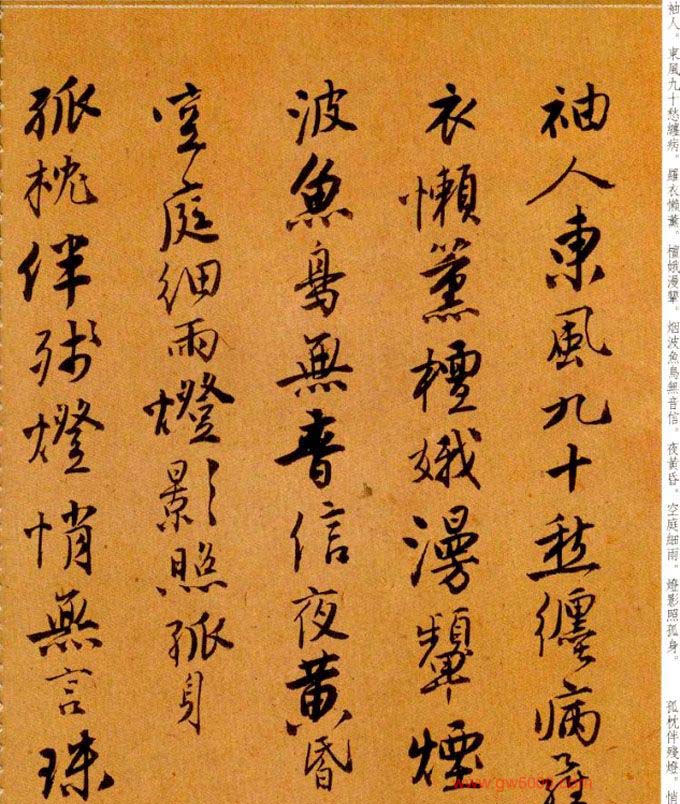 袖人東風九十愁纏病羅
衣懶薰檀娥漫顰煙
波魚鳥無音信夜黃昏
空庭細雨燈影照孤身
孤枕伴殘燈悄無言珠
袖人。東風九十愁纏病。羅衣懶薰。檀娥漫顰。烟波魚鳥無音信。夜黃昏。空庭細雨。燈影照孤身。 孤枕伴殘燈。悄